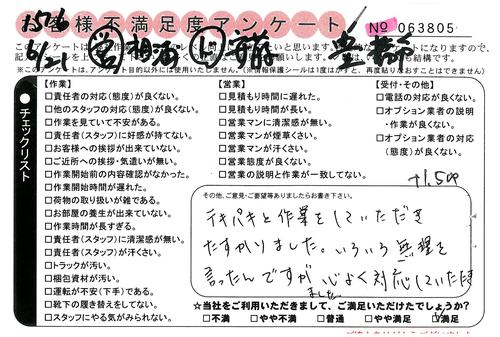 お客様不満足度アンケート
No 063805
6/21
※このアンケートは、アンケート目的以外には使用いたしません。(※情報保護シールは1度はがすと、再度貼りなおすことはできません)
チェックリスト
【作業】
□責任者の対応(態度)が良くない。
□他のスタッフの対応(態度)が良くない。
□作業を見ていて不安がある。
□責任者(スタッフ)に好感が持てない。
□お客様への挨拶が出来ていない。
□ご近所への挨拶・気遣いが無い。
□作業開始前の内容確認がなかった。
□作業開始時間が遅れた。
□荷物の取り扱いが雑である。
□お部屋の養生が出来ていない。
□作業時間が長すぎる。
□責任者(スタッフ)に清潔感が無い。
□責任者(スタッフ)が汗くさい。
□トラックが汚い。
□梱包資材が汚い。
□運転が不安(下手)である。
□靴下の履き替えをしてない。
□スタッフにやる気がみられない。
【営業】
□見積もり時間に遅れた。
□見積もり時間が長い。
□営業マンに清潔感が無い。
□営業マンが煙草くさい。
□営業マンが汗くさい。
□営業態度が良くない。
□営業の説明と作業が一致してない。
【受付・その他】
□電話の対応が良くない。
□オプション業者の説明・作業が良くない。
□オプション業者の対応(態度)が良くない。
その他、ご意見・ご要望等ありましたらお書き下さい。
テキパキと作業をしていただき
たすかりました。いろいろ無理を
言ったんですが 心よく対応していただき
ました。
☆当社をご利用いただきまして、ご満足いただけたでしょうか?
□不満 □やや不満 □普通 □やや満足 ☑満足